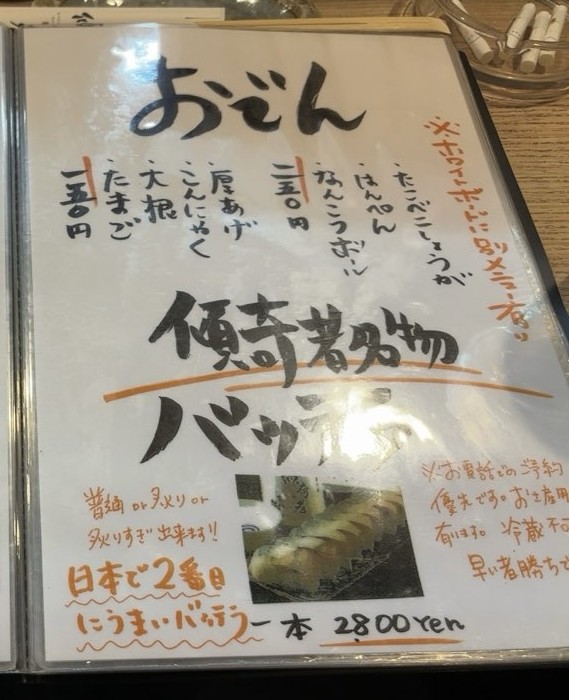 おでん
※ホワイトボードに別メニュー有り
・たこべにしょうが
・はんぺん
・なんこつボール
二五〇円
・厚あげ
・こんにゃく
・大根
・たまご
一五〇円
傾奇者名物
バッテラ
普通or炙りor
炙りすぎ出来ます!!
日本で2番目
にうまいバッテラ
一本 2800yen
※お電話でのご予約
優先です。お土産用
有ります。冷蔵不可
早い者勝ちで